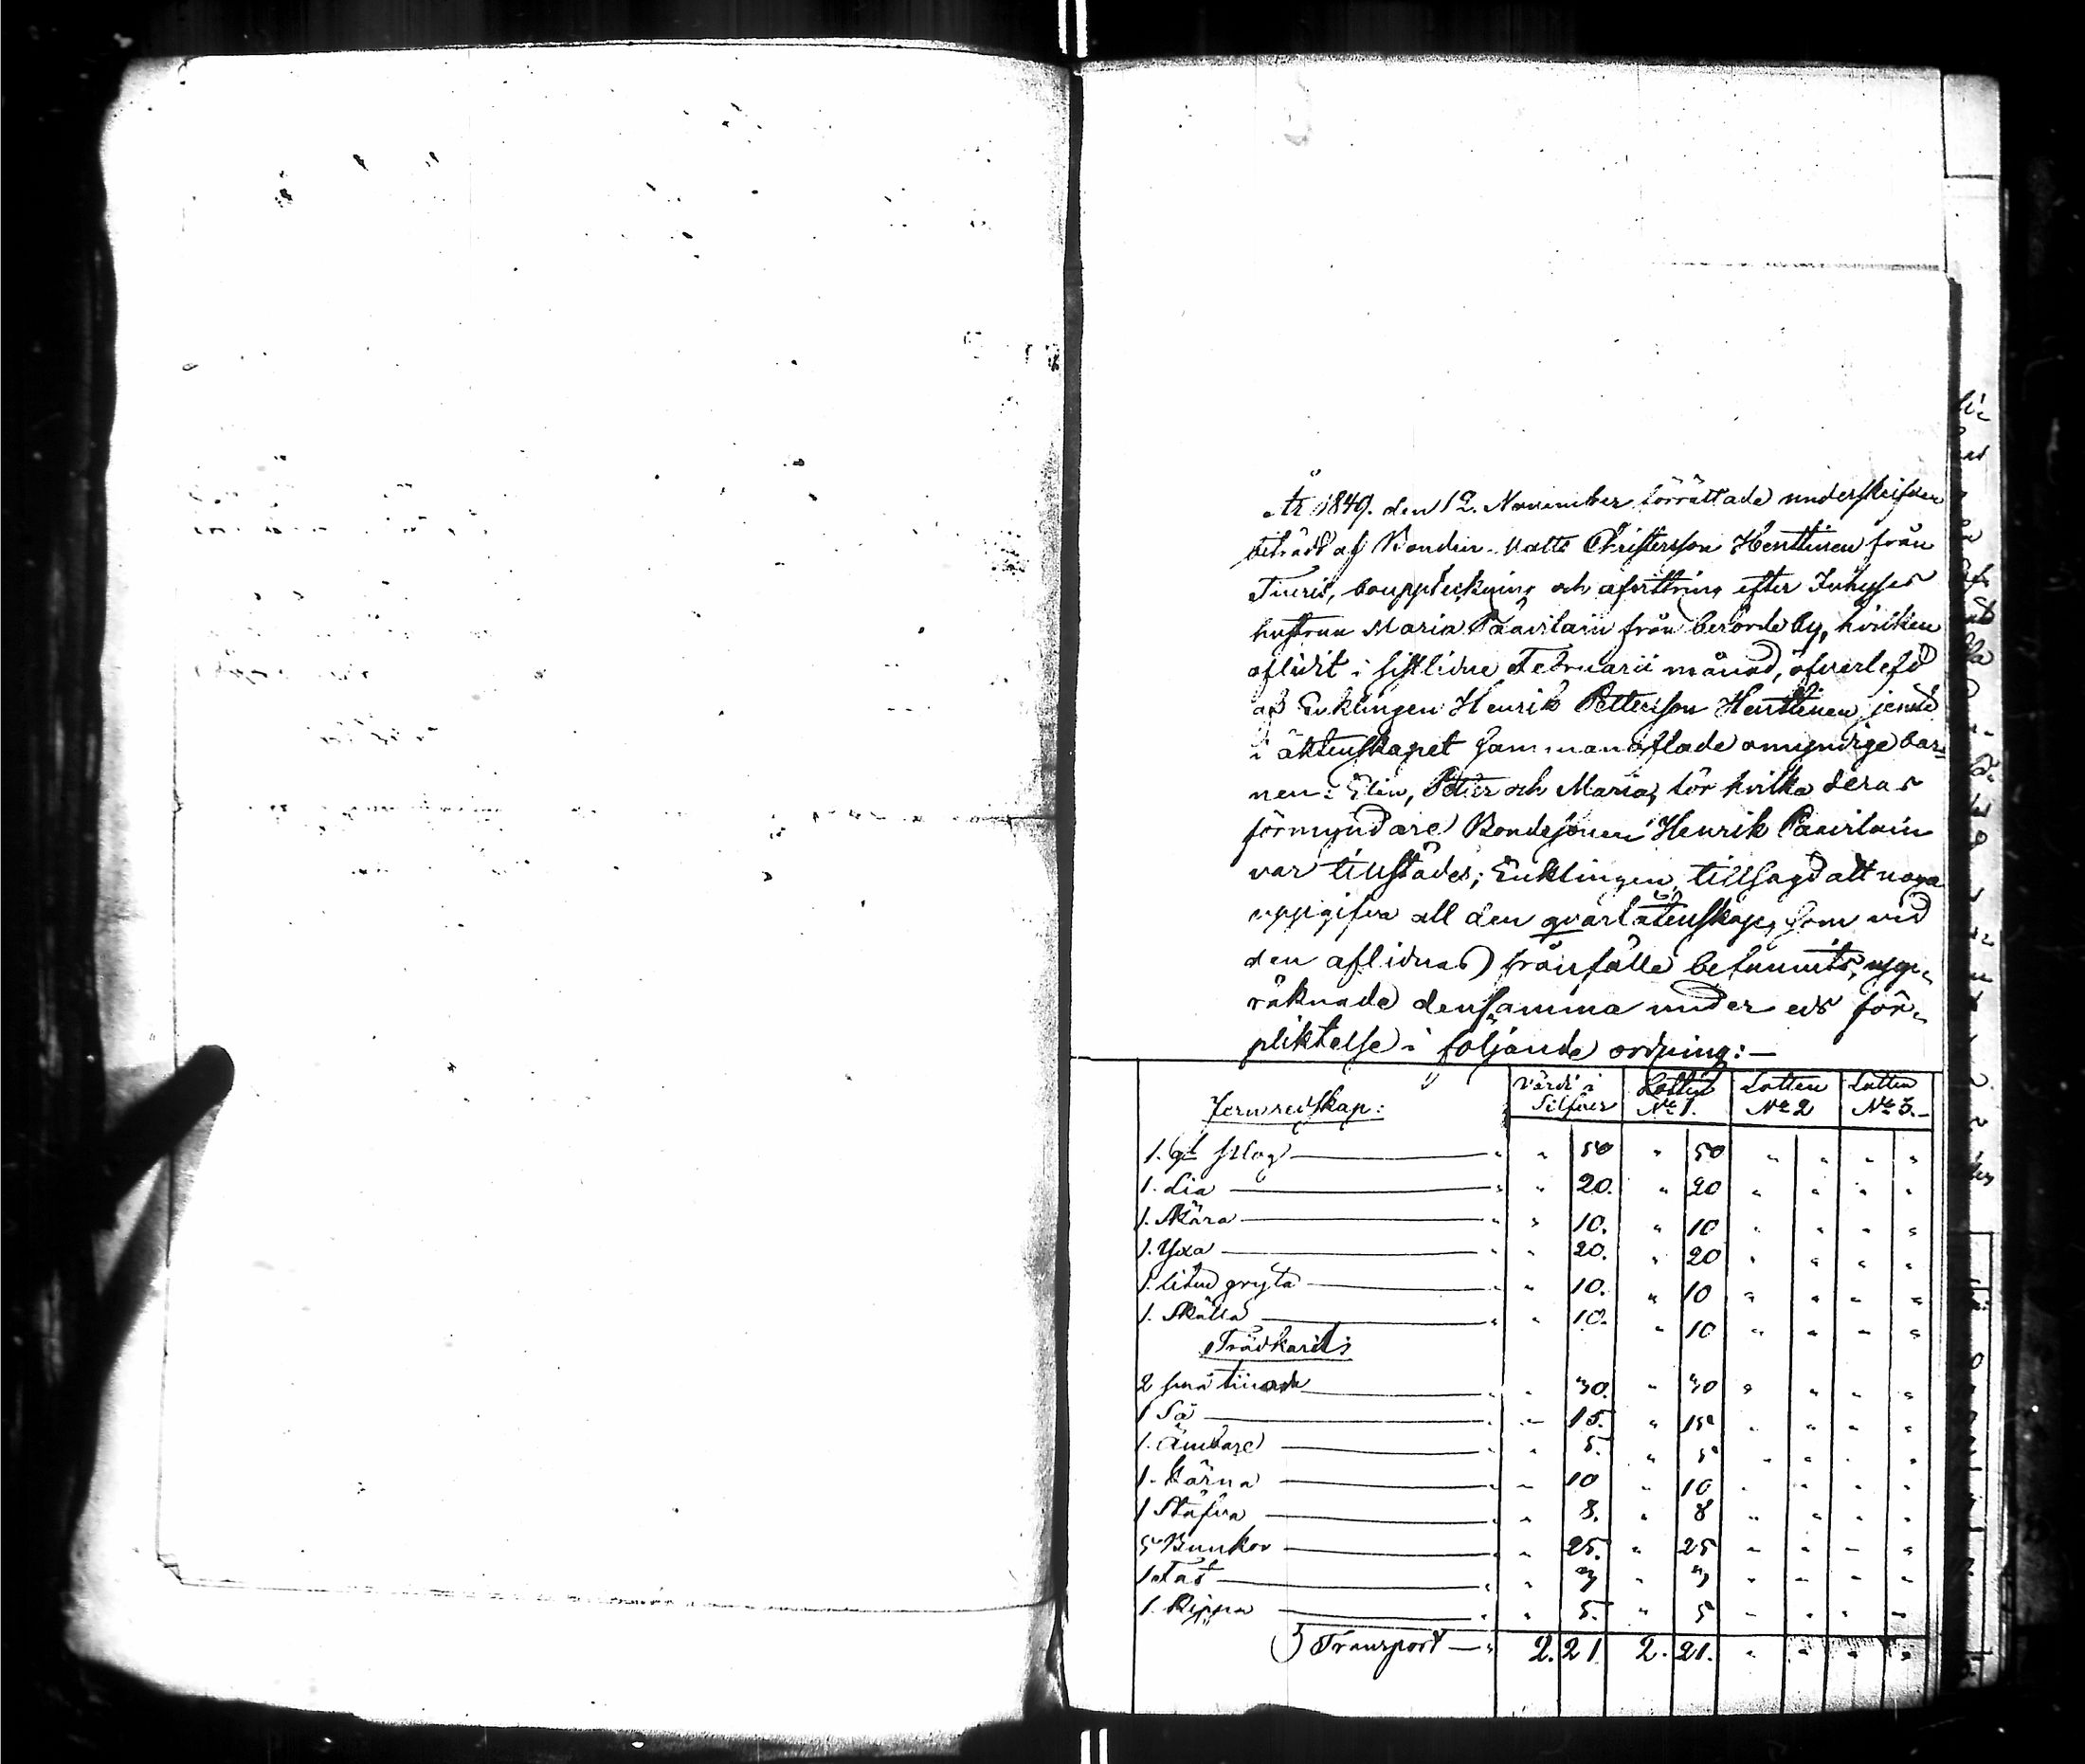 År 1849. den 12. November förrättade underskrifven
biträdd af Bonden Matts Christersson Henttinen från
Tiuris, bouppteckning och afvittring efter Inhyses
hustrun Maria Paavilain från berörde by, hvilken
aflidit i sistlidne Februarii månad, öfverlefd
af Enklingen Henrik Pettersson Henttinen jemte
i äktenskapet sammanaflade omyndige bar=
nen: Elin, Petter och Maria, för hvilka deras
förmyndare Bondesonen Henrik Paavilain
var tillstädes; Enklingen, tillsagd att noga
uppgifva all den qvarlåtenskap, som vid
den aflidnas frånfälle befunnits, upp-
räknade densamma under eds för-
pliktelse i följande ordning:—
Jernredskap: Värdi i Silfver Lotten No 1. Lotten No 2 Lotten No 3.
1. gl plog " 50 " 50 " " " "
1. Lia " 20. " 20 " " " "
1. Skära " 10. " 10 " " " "
1. Yxa " 20. " 20 " " " "
1. liten gryta " 10. " 10 " " " "
1. Skälla " 10. " 10 " " " "
Trädkäril:
2 små tinor " 30. " 30 " " " "
1 Så " 15. " 15 " " " "
1. Ämbare " 5. " 5 " " " "
1. Kärna " 10 " 10 " " " "
1 Stäfva " 8. " 8 " " " "
5 Bunkor " 25. " 25 " " " "
1 Fat " 3 " 3 " " " "
1. Kippa " 5. " 5 " " " "
Transport " 2. 21. 2. 21. " " " "